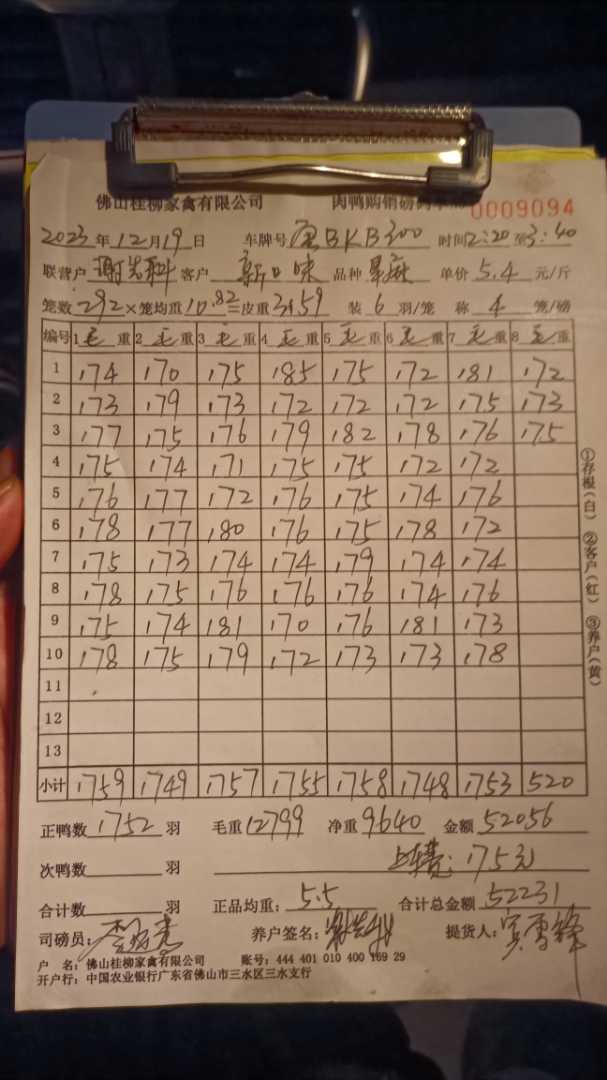 佛山桂柳家禽有限公司 肉鸭购销磅 0009094
2023年12月19日 车牌号 BKB300 时间2:20至3:40
联营户 谢先科 客户 新口味 品种 单价5.4元/斤
笼数292×笼均重10.82=皮重3159 装6羽/笼 称4笼/磅
编号 1毛重 2毛重 3毛重 4毛重 5毛重 6毛重 7毛重 8毛重
1 174 170 175 185 175 172 181 172
2 173 179 173 172 172 172 175 173
3 177 175 176 179 182 178 176 175
4 175 174 171 175 175 172 172
5 176 177 172 176 175 174 176
6 178 177 180 176 175 178 172
7 175 173 174 174 179 174 174
8 178 175 176 176 176 174 176
9 175 174 181 170 176 181 173
10 178 175 179 172 173 173 178
11
12
13
小计 1759 1749 1757 1755 1758 1748 1753 520
正鸭数1752羽 毛重12799 净重9640 金额52056
次鸭数 羽 上车费:175元
合计数 羽 正品均重:5.5 合计总金额52231
司磅员: 养户签名: 提货人:
户 名:佛山桂柳家禽有限公司 账号:444 401 010 400 169 29
开户行:中国农业银行广东省佛山市三水区三水支行
①存根(白) ②客户(红) ③养户(黄)